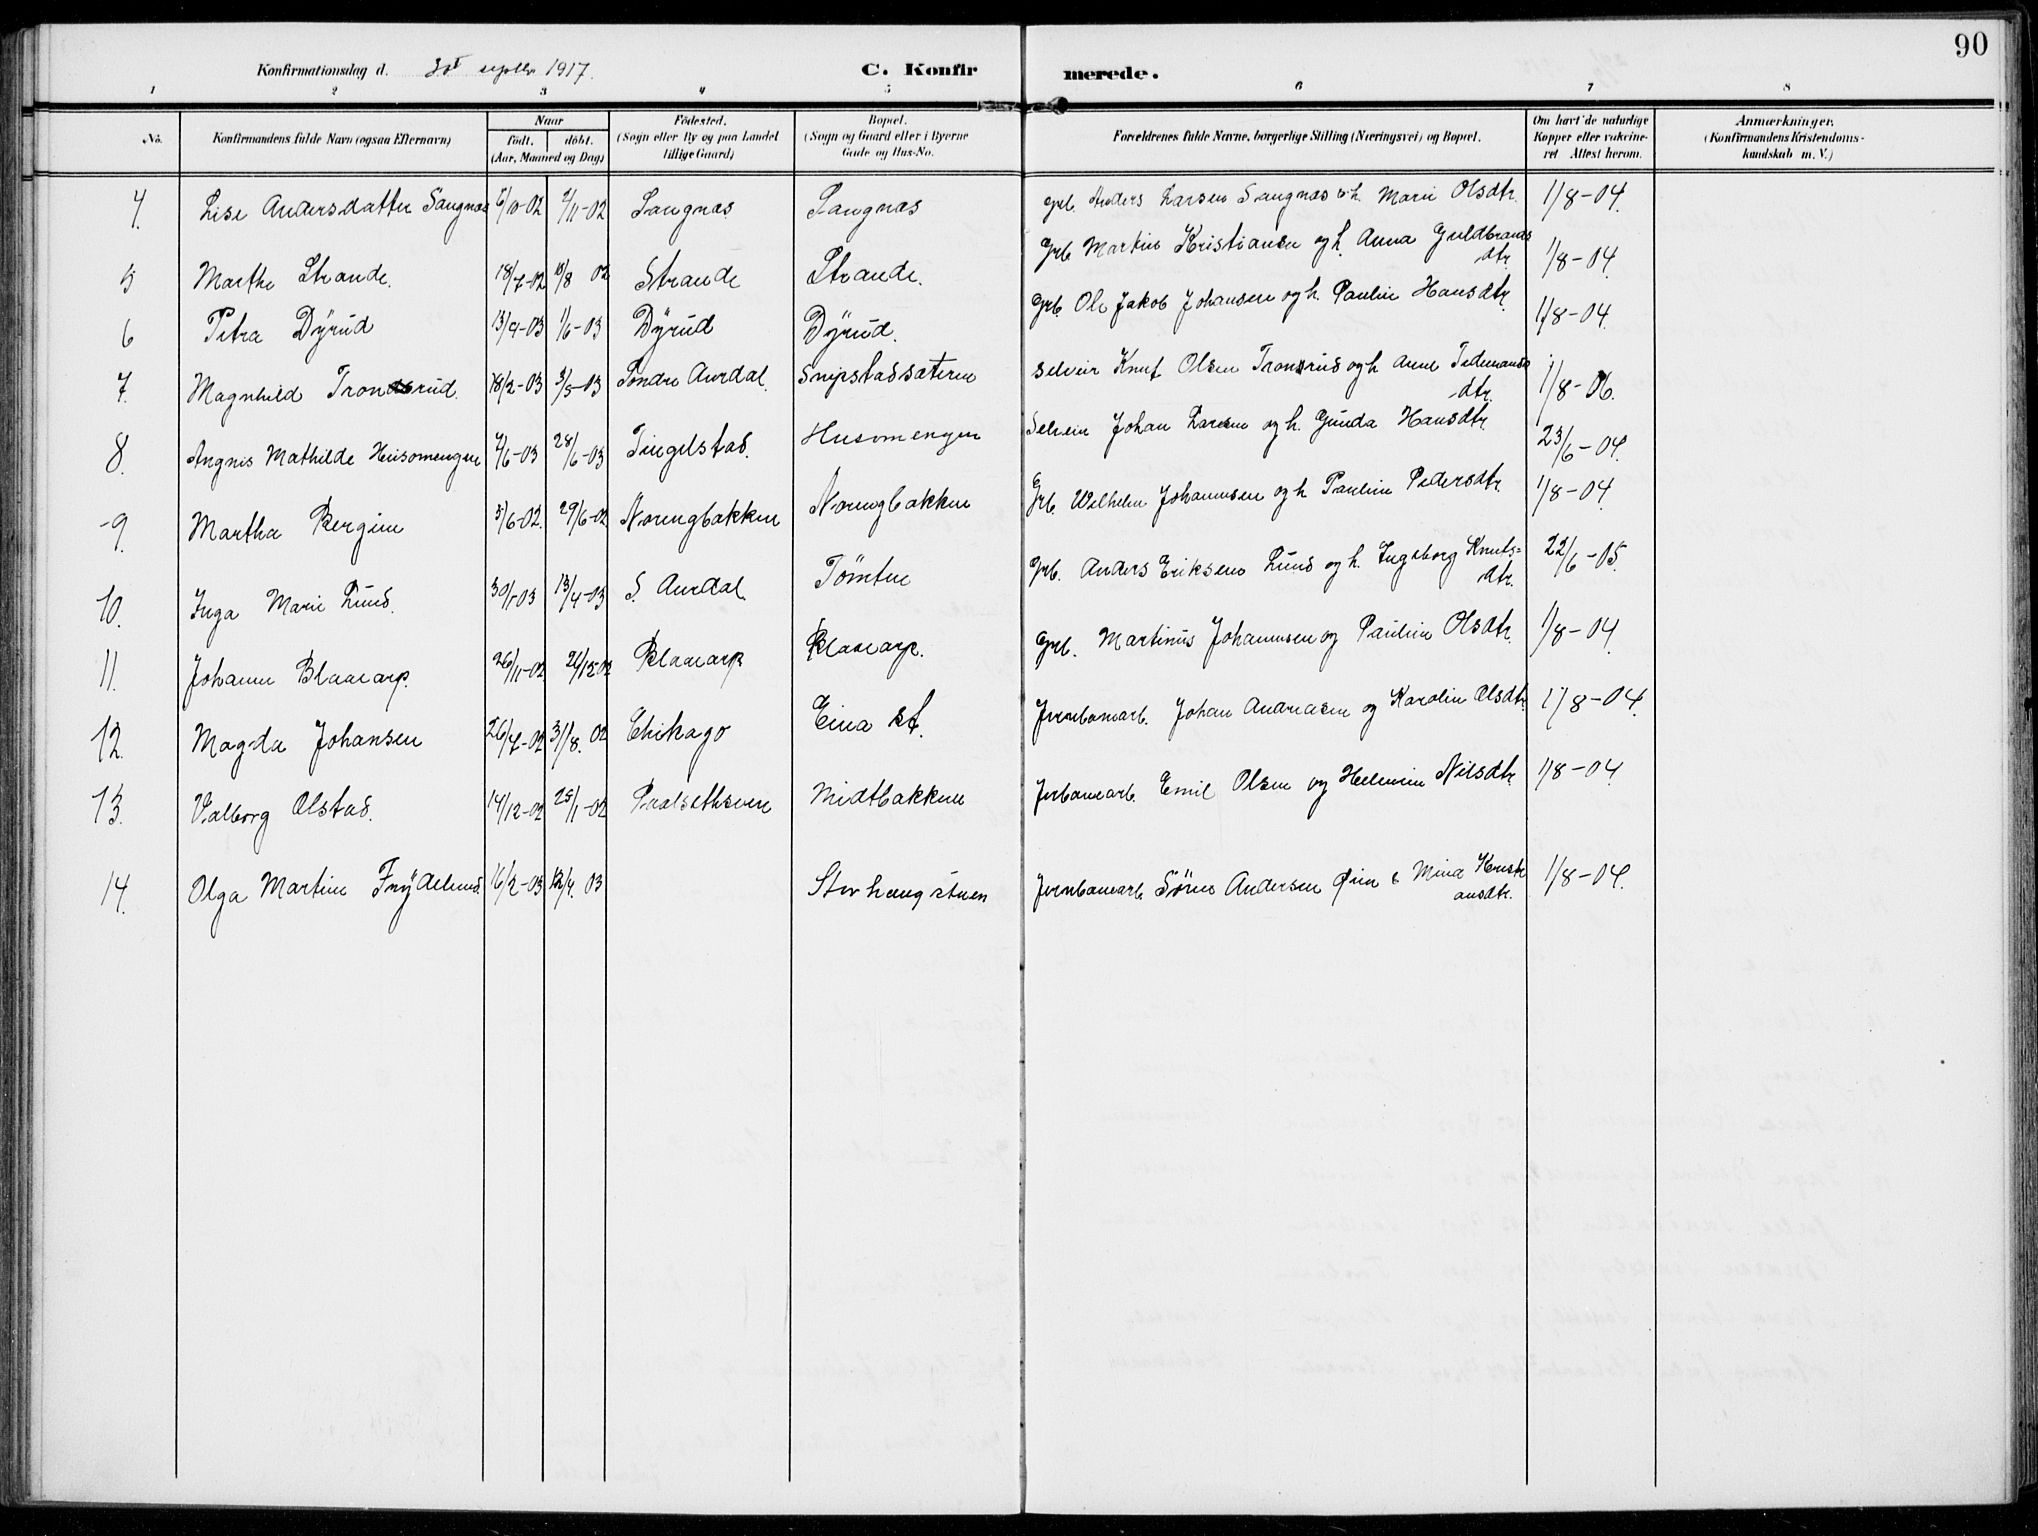 90
Konfirmationsdag d. 30t septbr 1917.
C. Konfirmerede.
1 2 3 4 5 6 7 8
No.
Konfirmandens fulde Navn (ogsaa Efternavn)
Naar
født. døbt.
(Aar, Maaned og Dag)
Fødested.
(Sogn eller By og paa Landet
tillige Gaard)
Bopæl.
(Sogn og Gaard eller i Byerne
Gade og Hus-No.
Forældrenes fulde Navne, borgerlige Stilling (Næringsvei) og Bopæl.
Om havt de naturlige
Kopper eller vakcine-
ret Attest herom.
Anmærkninger.
(Konfirmandens Kristendoms-
kundskab m. V.)
4. Lise Andersdatter Sangnæs 6/10-02 2/11-02 Sangnæs Sangnæs Grb. Anders Larsen Sangnæs o h. Marie Olsdtr. 1/8-04.
5 Marthe Strande. 18/7-02 10/8 02 Strande Strande. Grb Martin Kristiansen og h. Anna Guldbrands
dtr. 1/8-04.
6 Petra Dyrud 13/9-03 1/6-03 Dyrud Dyrud. Grb. Ole Jakob Johansen og h. Pauline Hansdtr. 1/8-04.
7. Magnhild Trondsrud. 18/2-03 3/5-03 Søndre Aurdal. Snipstadsæteren Selveier Knut Olsen Tronsrud og h Anne Tidemands
dtr. 1/8-06.
8. Angnis Mathilde Husomengen 4/6-03 28/6-03 Tingelstad. Husomengen Selveier Johan Larsen og h. Gunda Hansdtr. 23/6-04.
9. Martha Bergine 5/6-02. 29/6-02 Norengbakken Norengbakken Grb. Wilhelm Johannesen og h Pauline Pedersdtr. 1/8-04.
10. Inga Marie Lund. 30/1-03 13/4-03 S. Aurdal. Tømten Grb. Anders Eriksen Lund og h. Ingeborg Knuts-
dtr. 22/6-05.
11. Johanne Blaaarp. 26/11-02 26/12-02 Blaaarp Blaaarp. Grb. Martinus Johannesen og Pauline Olsdtr. 1/8-04.
12. Magda Johansen 26/7-02 31/8. 02 Chikago Eina st. Jernbanearb. Johan Andreasen og Karoline Olsdtr. 1/8-04.
13. Valborg Olstad. 14/12-02 25/1-02 Paalsethsveen Midtbakken Jerbanearb. Emil Olsen og Helmine Nilsdtr. 1/8-04
14. Olga Martine Frydelund. 16/2-03 12/4. 03 Storhaugstuen Jernbanearb. Sørine Andersen Øien & Mina Kristi
ansdtr. 1/8-04.